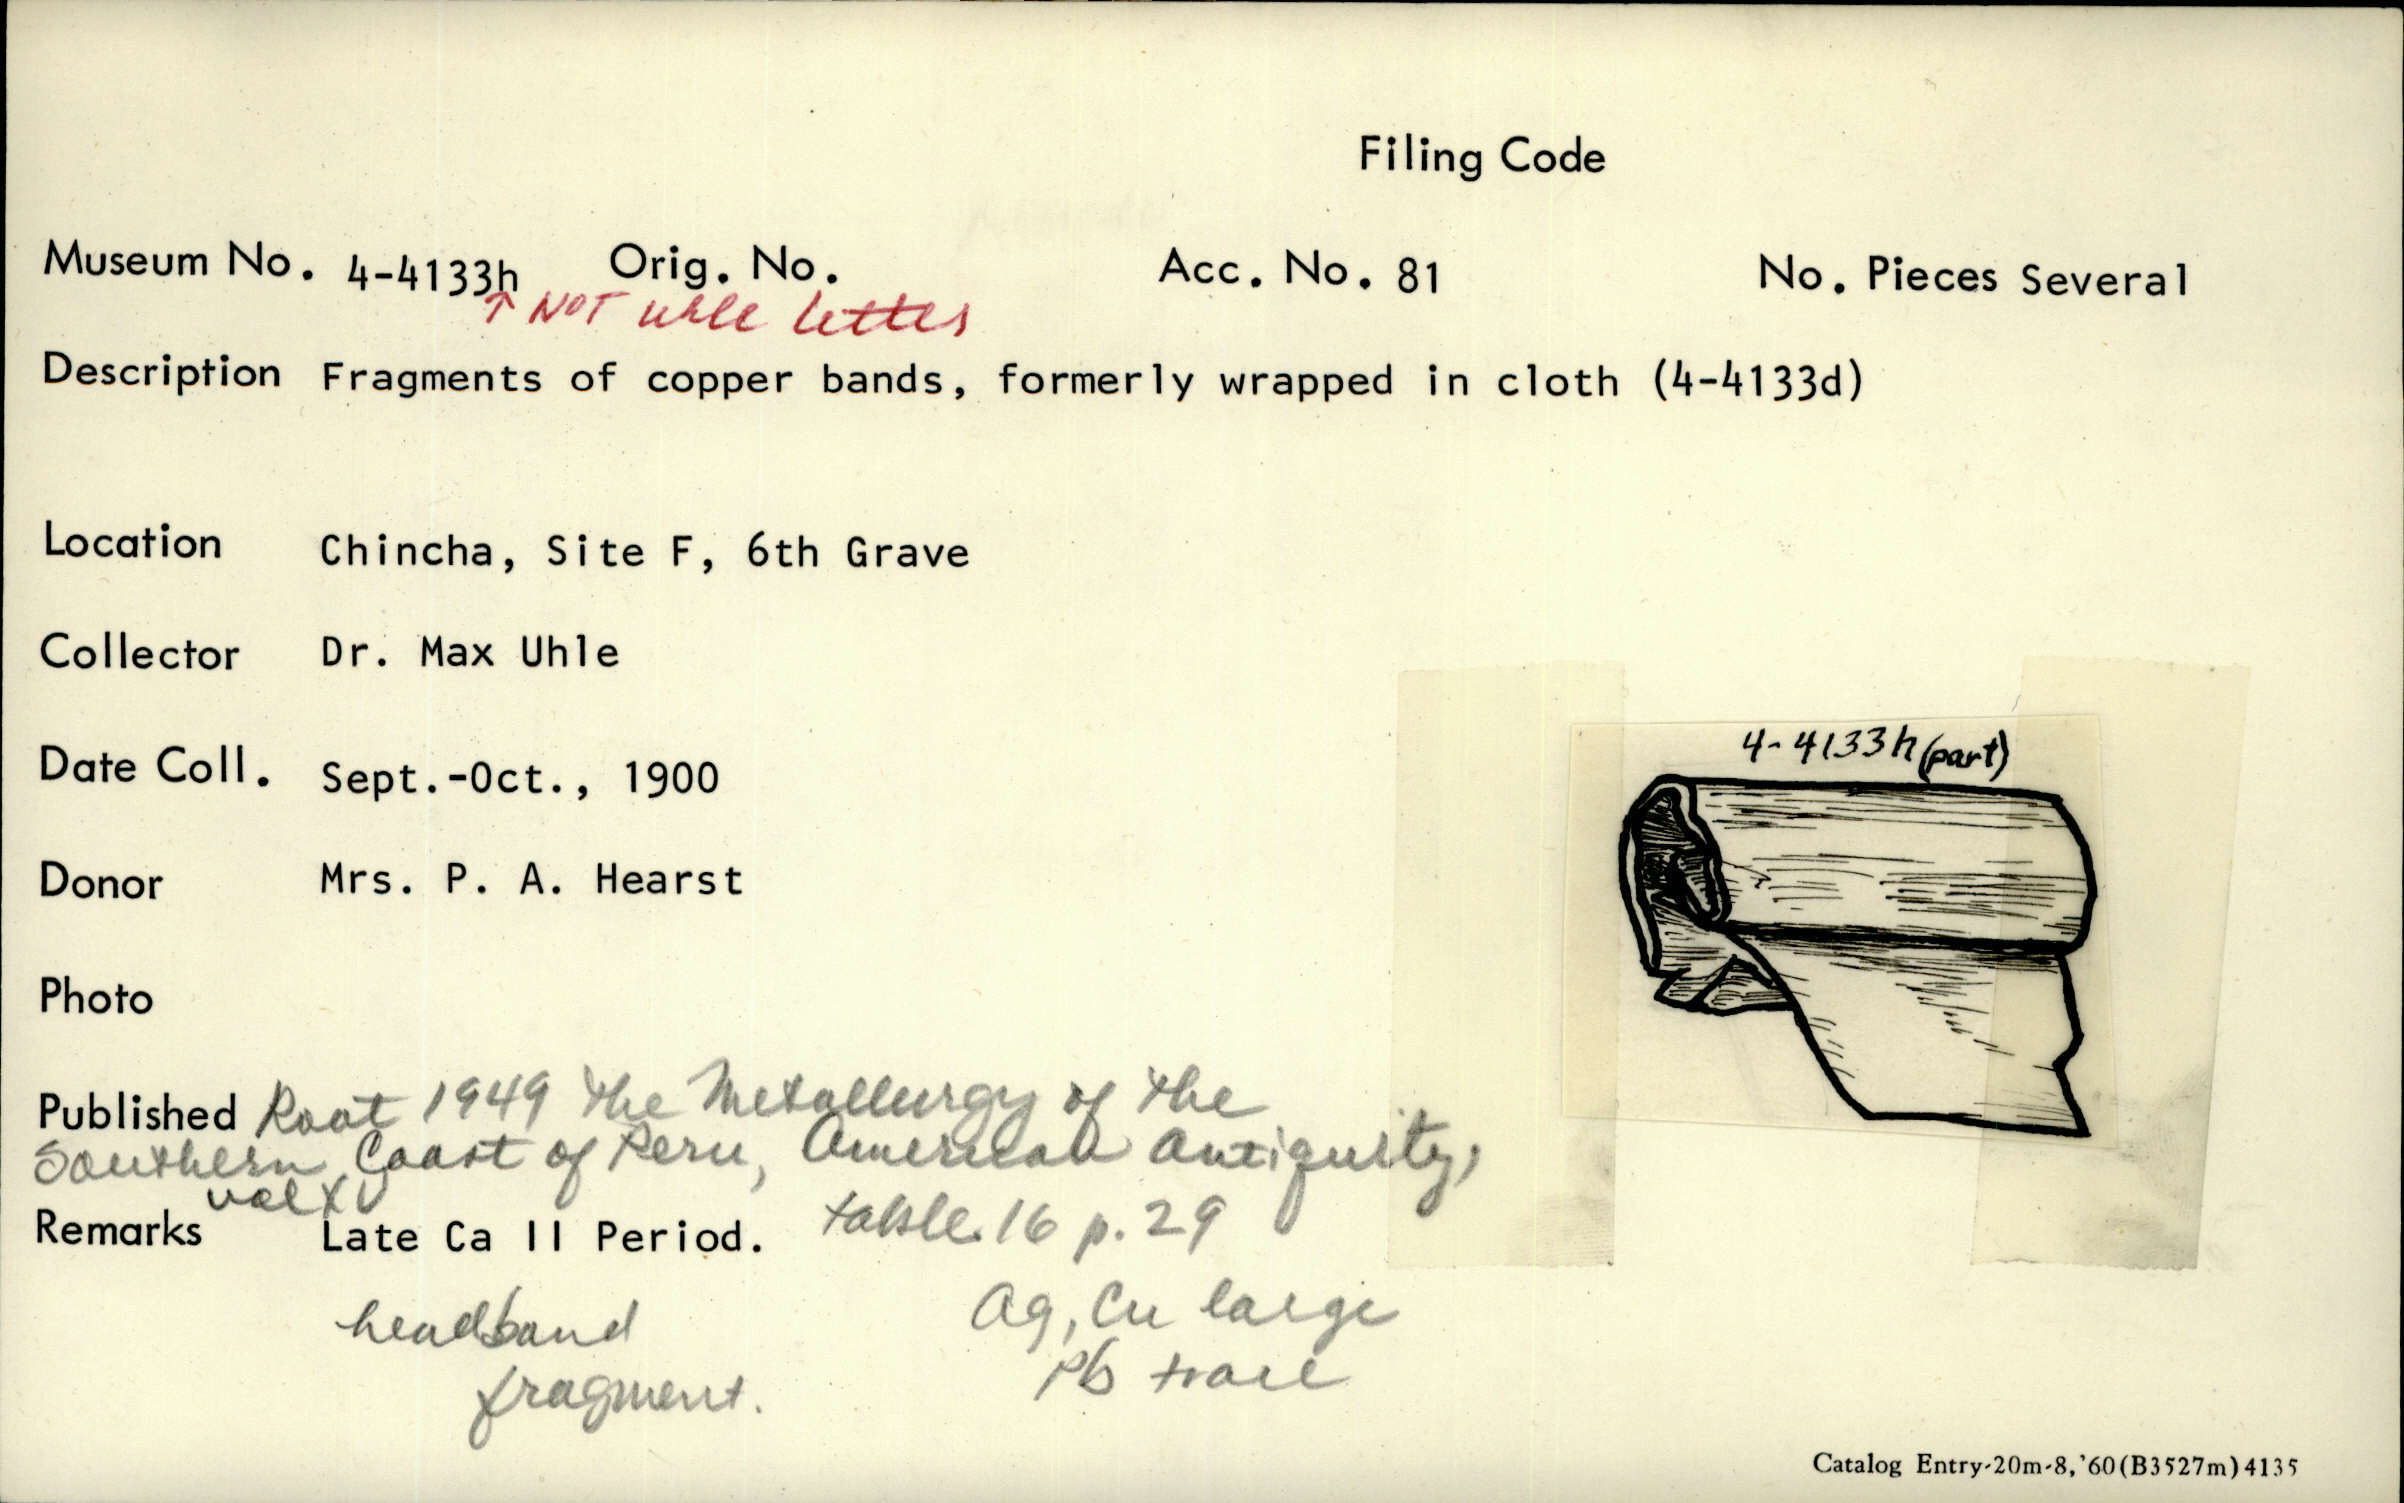 Filing Code
Museum No. 4-4133h Orig. No. Acc. No. 81 No. Pieces Several
↑ NOT Uhle letter
Description Fragments of copper bands, formerly wrapped in cloth (4-4133d)
Location Chincha, Site F, 6th Grave
Collector Dr. Max Uhle
Date Coll. Sept.-Oct., 1900
Donor Mrs. P. A. Hearst
Photo
4-4133h (part)
Published Root 1949 The Metallurgy of the
Southern Coast of Peru, American Antiquity,
vol XV
table 16 p. 29
Remarks Late Ca II Period.
headband
fragment.
Ag, Cu large
Pb trace
Catalog Entry-20m-8,'60(B3527m)4135